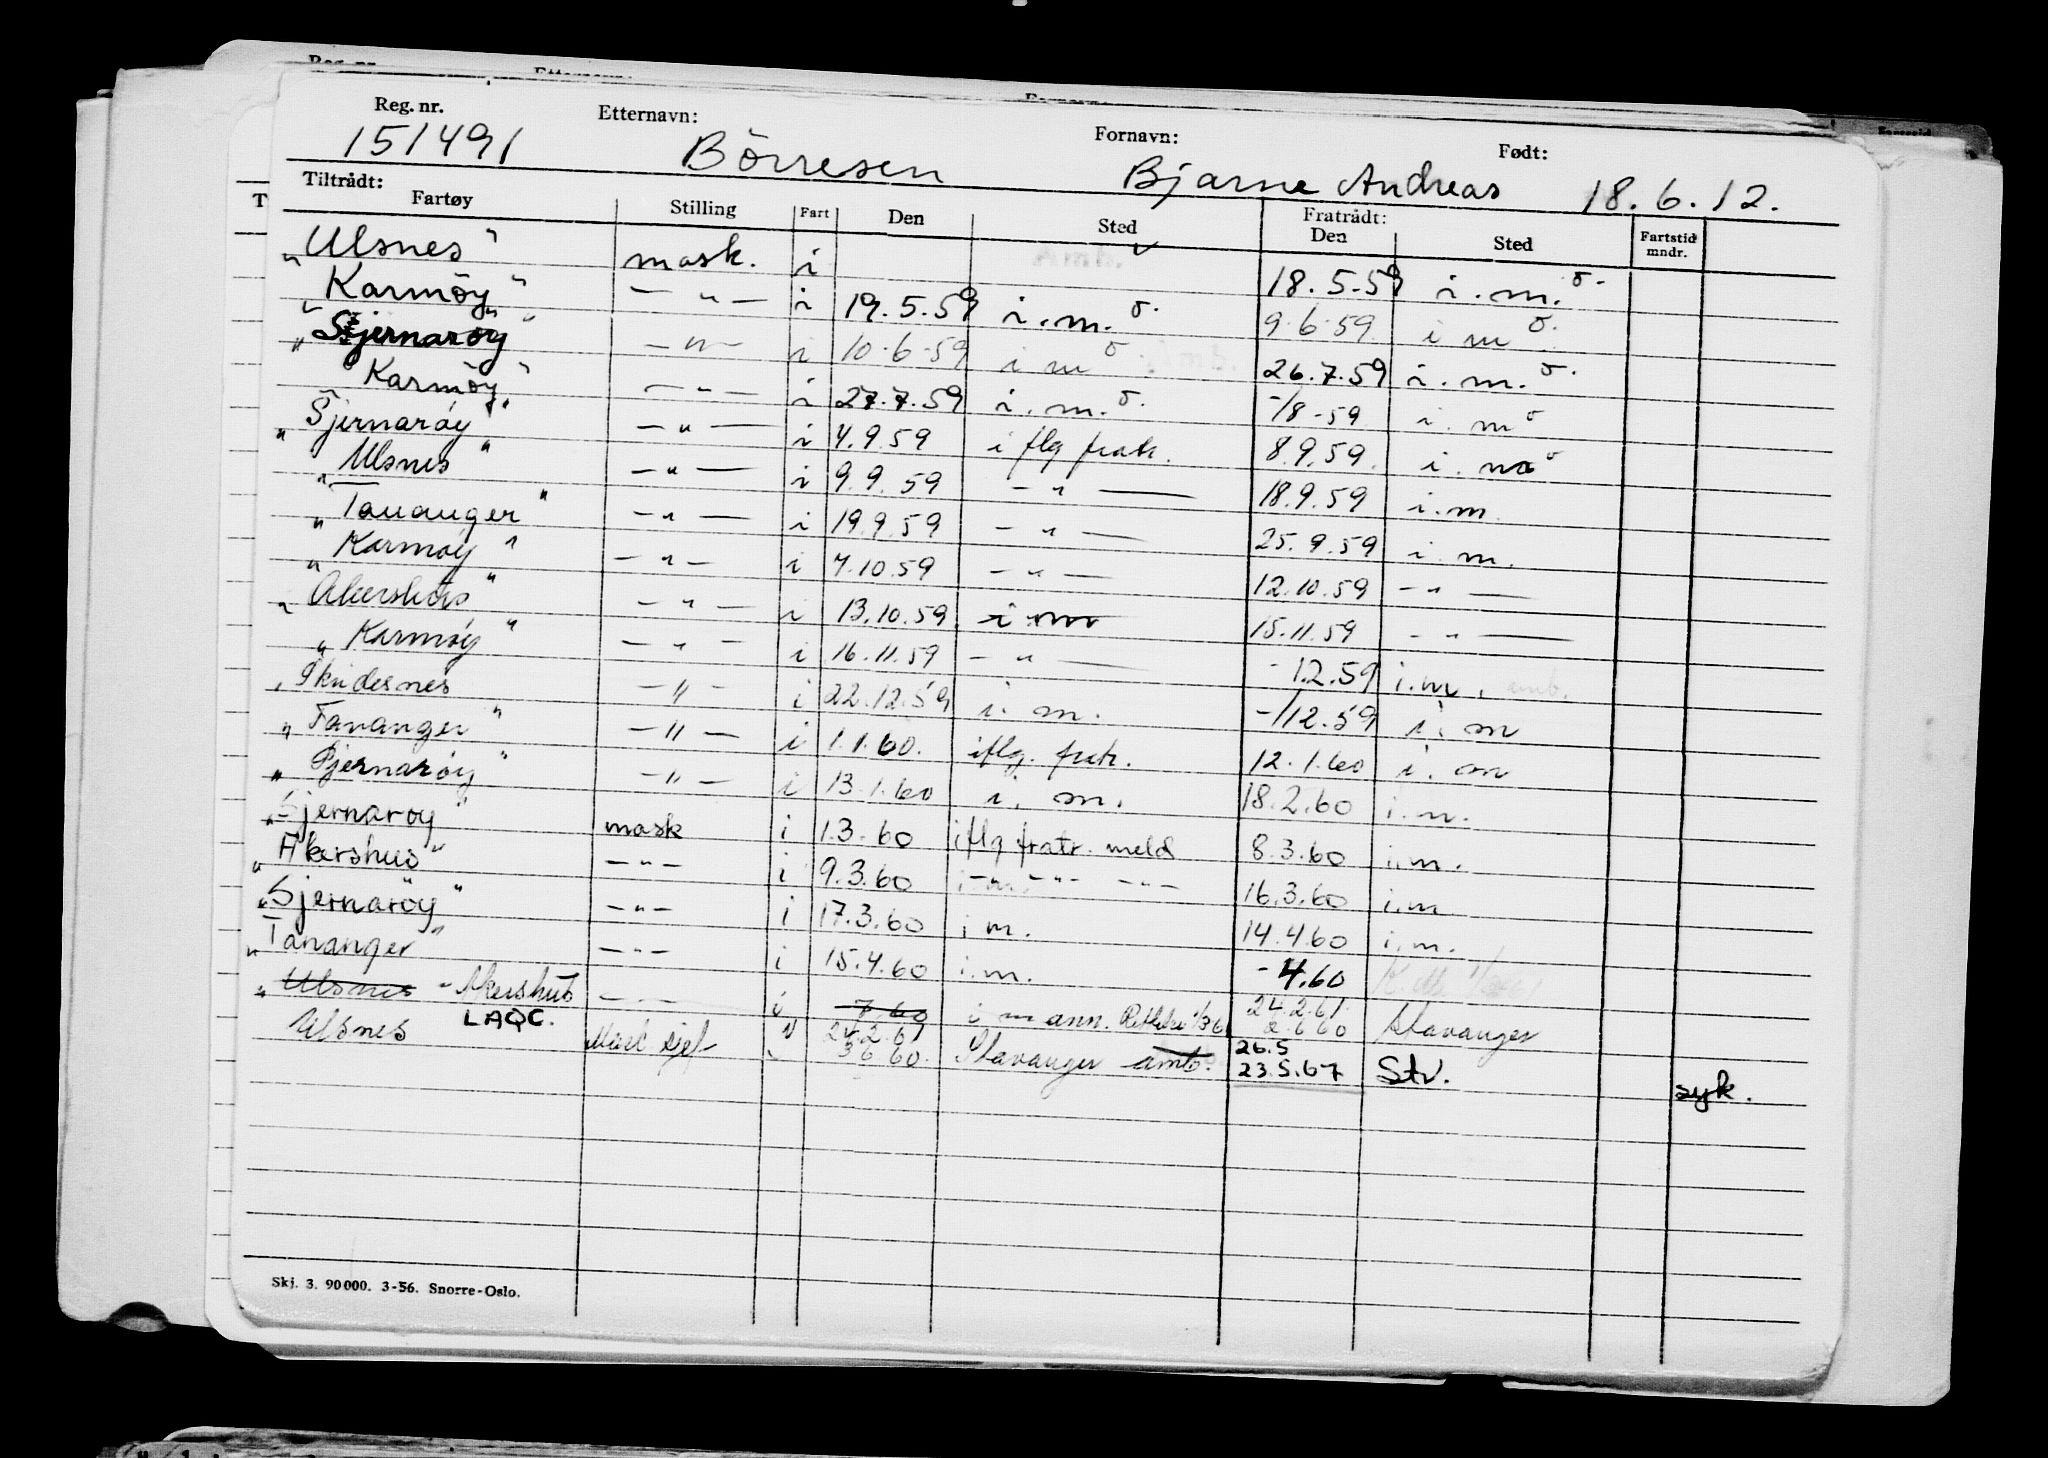 Reg. nr. Etternavn: Fornavn: Født:
151491 Börresen Bjarne Andreas 18.6.12.
Tiltrådt: Fratrådt:
Fartøy Stilling Fart Den Sted Den Sted Fartstid mndr.
"Ulsnes" mask. i 18.5.59 i.m.
"Karmöy" — " — i 19.5.59 i.m. 9.6.59 i m
"Sjernaröy" — " — i 10.6.59 i m 26.7.59 i.m.
"Karmöy" — " — i 27.7.59 i.m. -/8-59 i.m
"Sjernarøy" — " — i 4.9.59 i flg fratr. 8.9.59. i.m
"Ulsnes" — " — i 9.9.59 — " — 18.9.59 i.m.
"Tananger" — " — i 19.9.59 — " — 25.9.59 i.m.
"Karmøy" — " — i 4.10.59 — " — 12.10.59 — " —
"Akershus" — " — i 13.10.59 i m 15.11.59 — " —
"Karmøy" — " — i 16.11.59 — " — -12.59 i.m.
"Skudesnes — " — i 22.12.59 i.m. -/12.59 i.m
"Tananger" — " — i 1.1.60. iflg. fratr. 12.1.60 i.m
"Sjernarøy" — " — i 13.1.60 i.m. 18.2.60 i.m.
"Sjernarøy" mask i 1.3.60 iflg fratr. meld 8.3.60 i.m.
"Akershus" — " — i 9.3.60 — " — — " — 16.3.60 i.m
"Sjernaröy" — " — i 17.3.60 i m. 14.4.60 i.m.
"Tananger" — " — i 15.4.60 i.m. -4.60
"Ulsnes - Akershus — " — i 7.60 i m ann. 24.2.61
LAQC. 24.2.61 2.6.60 Stavanger
Ulsnes Mask sjef 3.6.60. Stavanger amb. 26.5
23.5.67 Stv. syk.
Skj. 3. 90 000. 3-56. Snorre-Oslo.